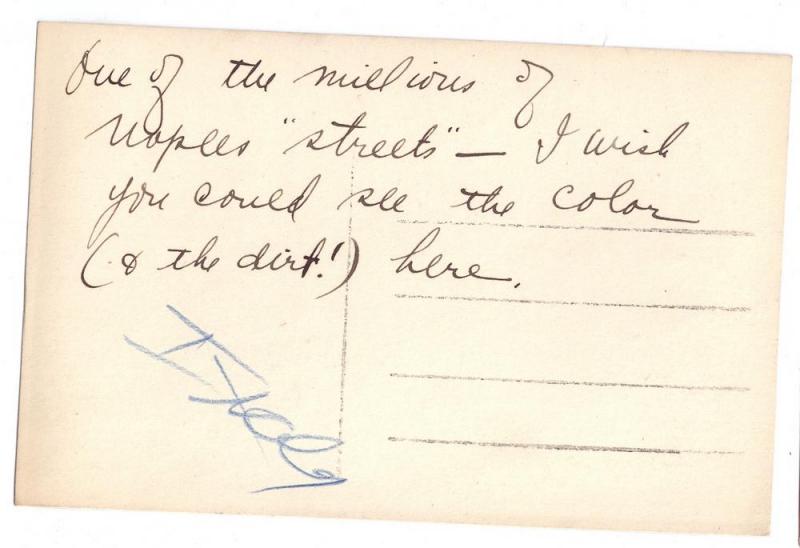 One of the millions of
Naples "streets" — I wish
you could see the color
(& the dirt!) here.
Italy